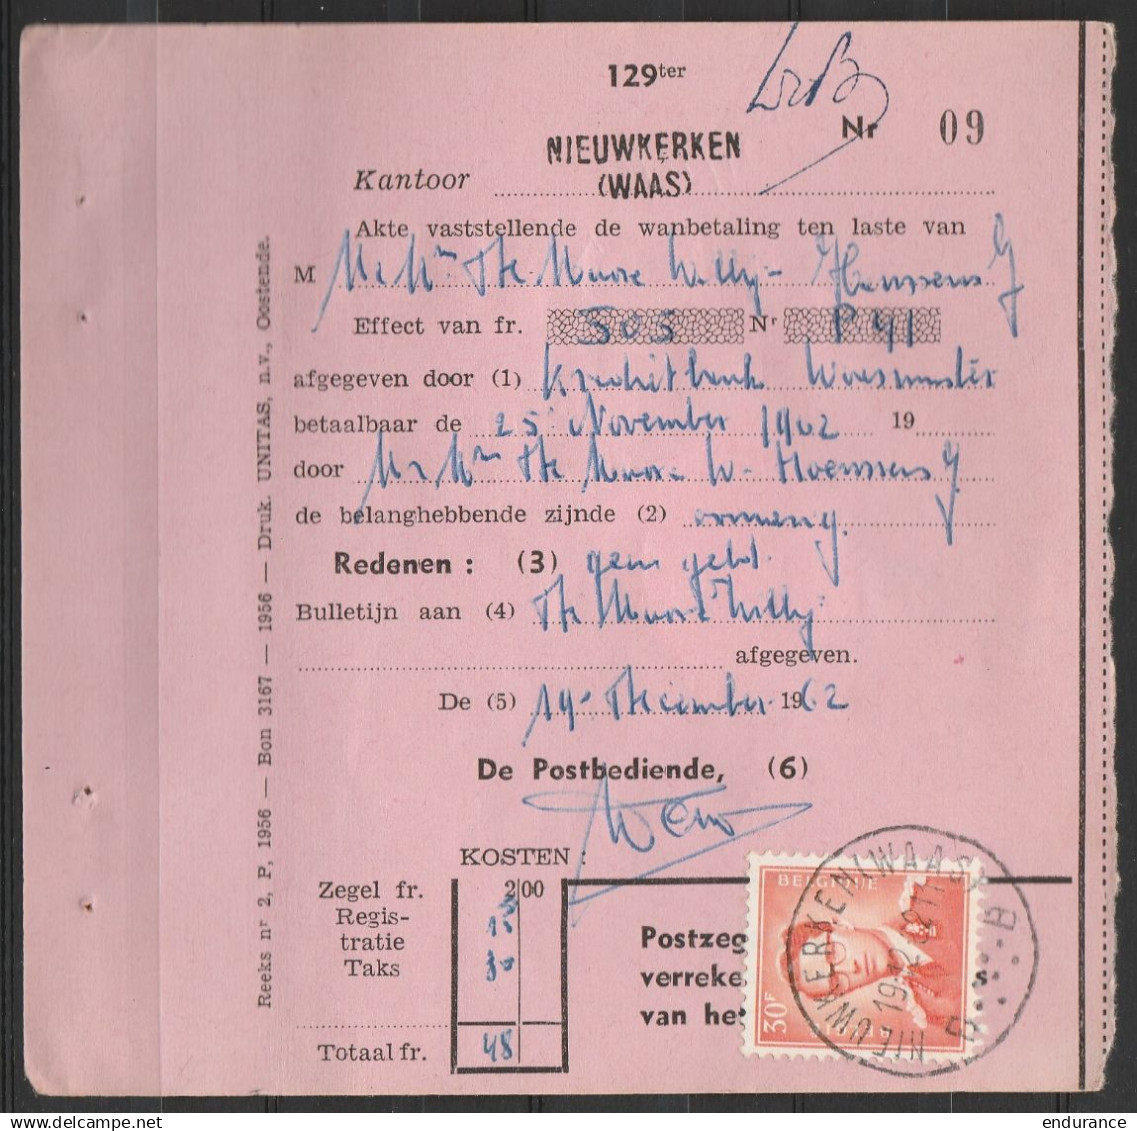 129ter
Nr 09
NIEUWKERKEN
(WAAS)
Kantoor
Akte vaststellende de wanbetaling ten laste van
M Mr Mm De Muore Willy -
Effect van fr. 505 Nr P 41
afgegeven door (1) Kredietbank Waasmunster
betaalbaar de 25 November 1962 19
door Mr Mm De Muore W -
de belanghebbende zijnde (2)
Redenen : (3) geen geld.
Bulletijn aan (4) De Muore Willy
afgegeven.
De (5) 19 - December 1962
De Postbediende, (6)
KOSTEN :
Zegel fr. 2 00
Regis-
tratie 15
Taks 30
Totaal fr. 48
Postzeg
verreke s
van het
BELGIQUE
30F
NIEUWKERKEN (WAAS)
19-12 62 11
B
Reeks nr 2, P, 1956 — Bon 3167 — 1956 — Druk. UNITAS, n.v., Oostende.
endurance